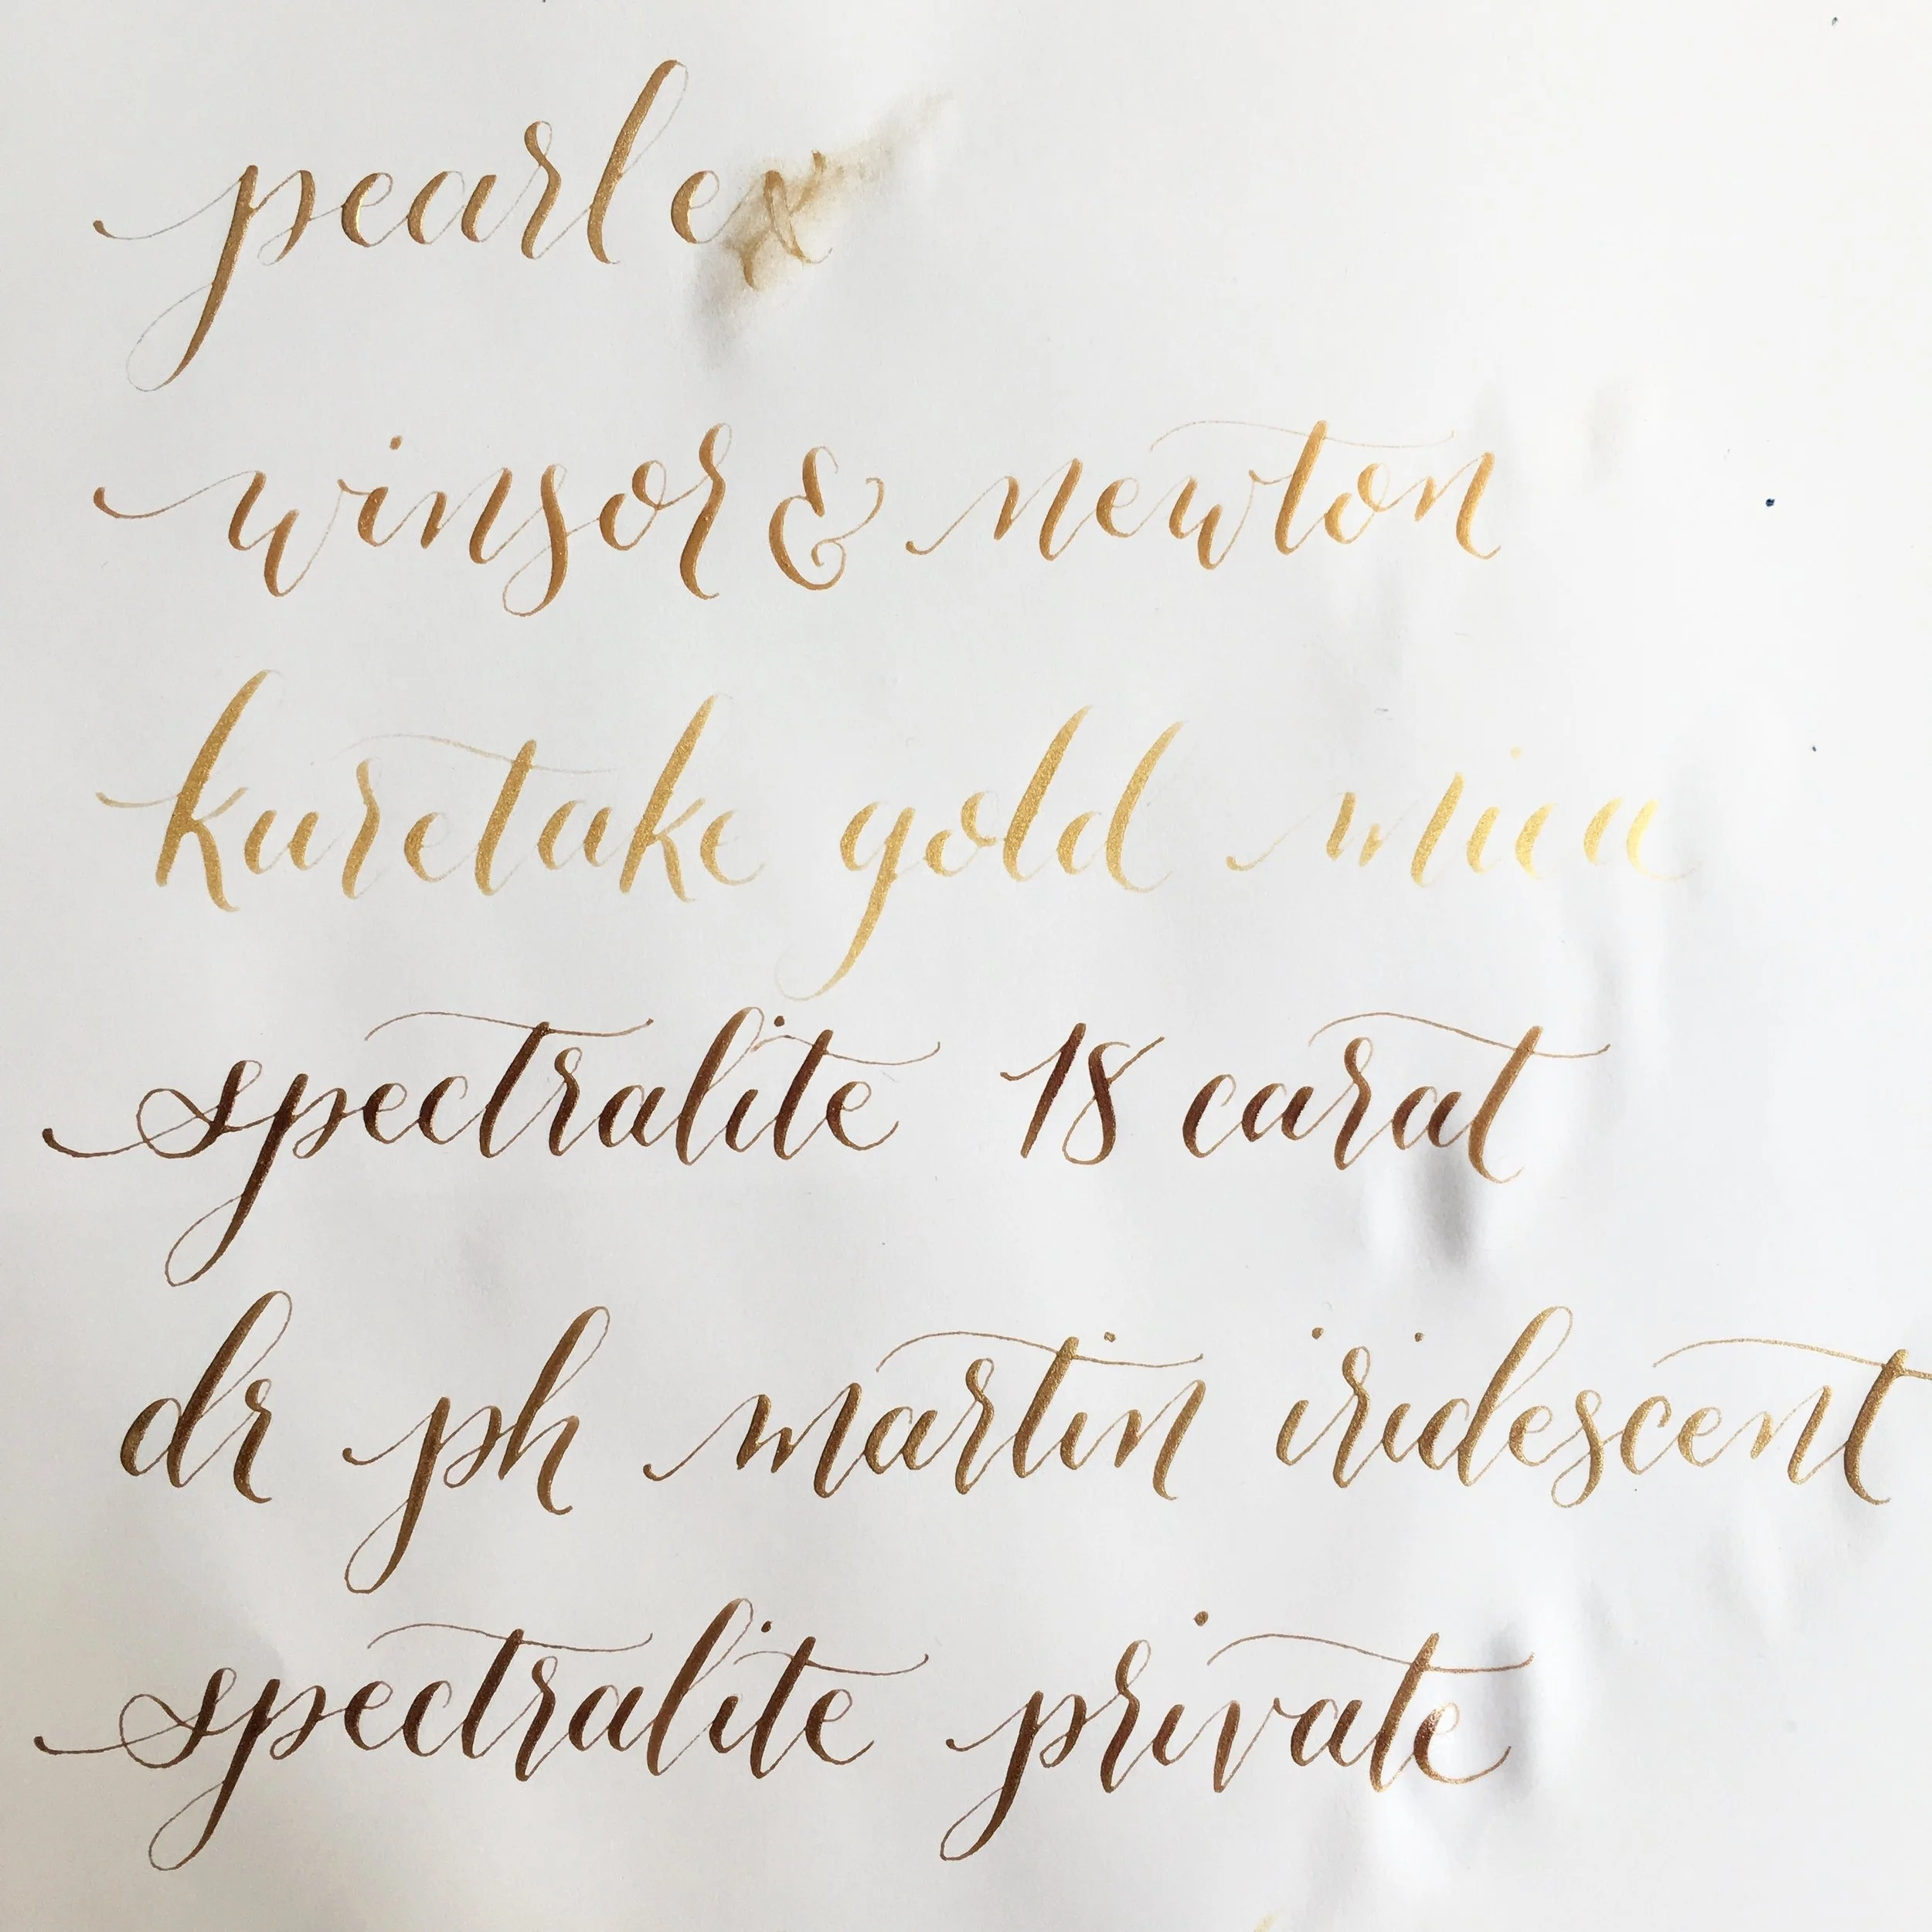 pearl ex
winsor & newton
kuretake gold mica
spectralite 18 carat
dr ph martin iridescent
spectralite private